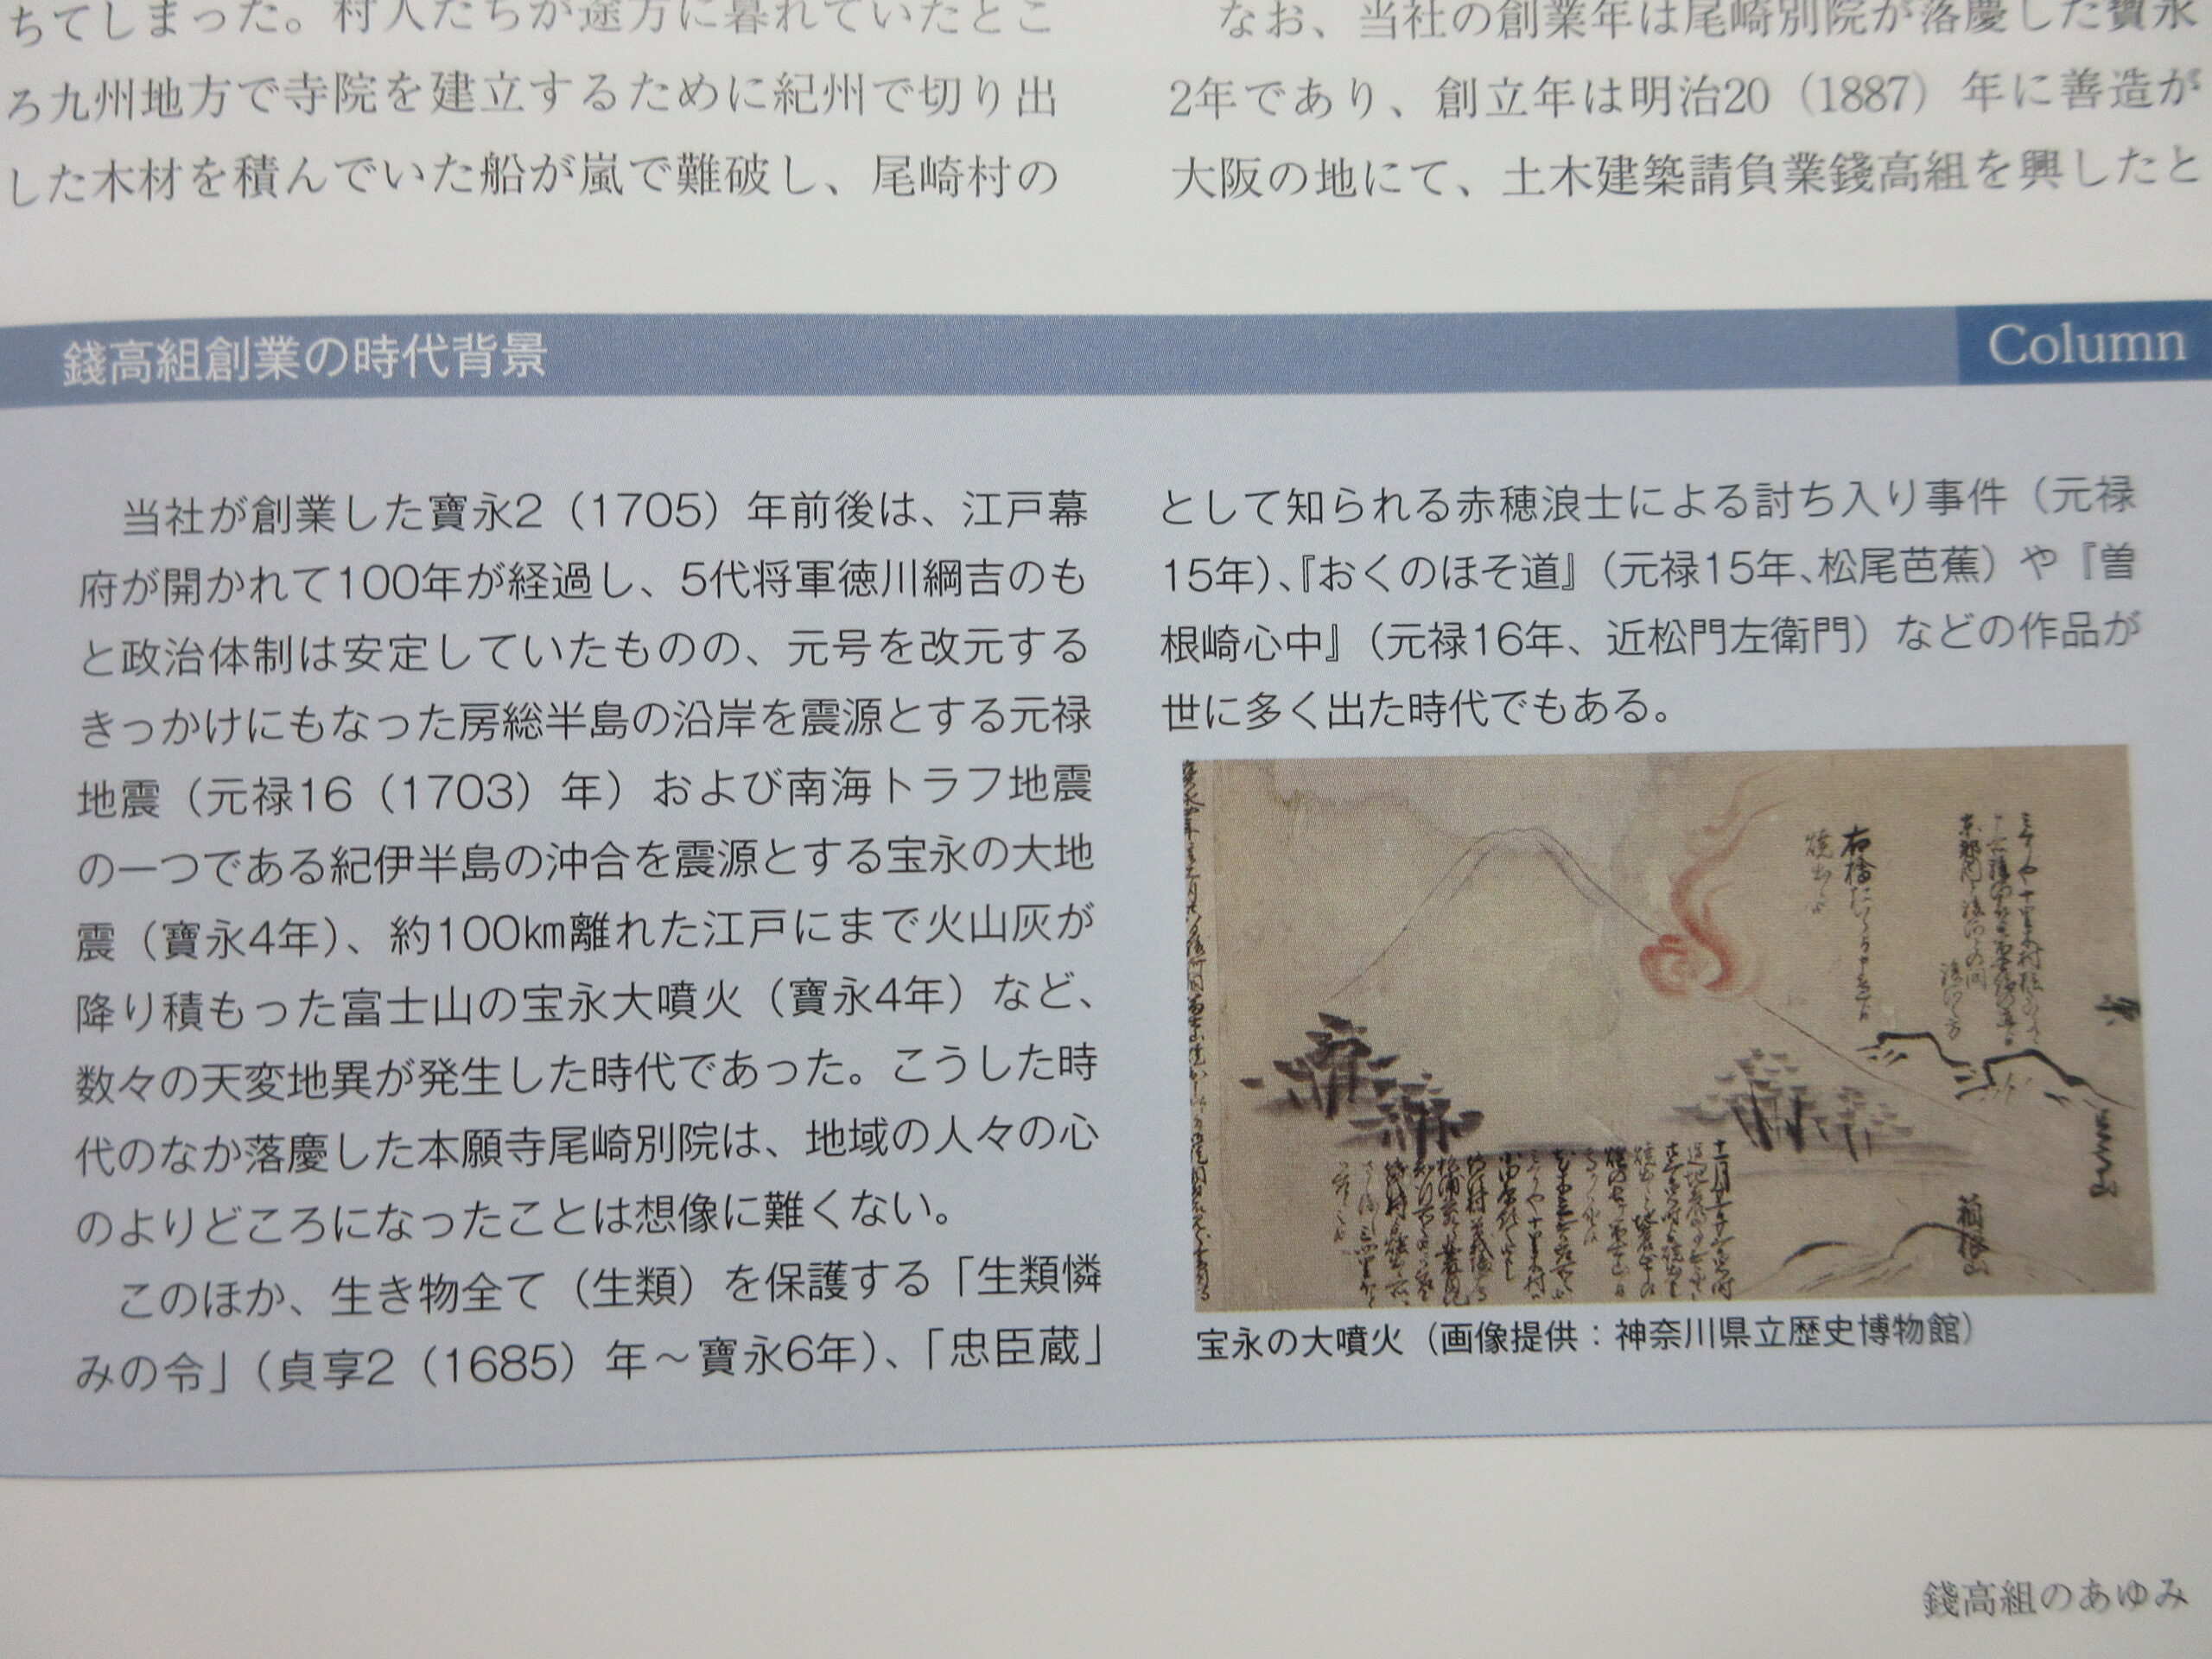 ちてしまった。村人たちが途方に暮れていたとこ
ろ九州地方で寺院を建立するために紀州で切り出
した木材を積んでいた船が嵐で難破し、尾崎村の
なお、当社の創業年は尾崎別院が落慶した寶永
2年であり、創立年は明治20（1887）年に善造が
大阪の地にて、土木建築請負業錢高組を興したと
錢高組創業の時代背景
Column
当社が創業した寶永2（1705）年前後は、江戸幕
府が開かれて100年が経過し、5代将軍徳川綱吉のも
と政治体制は安定していたものの、元号を改元する
きっかけにもなった房総半島の沿岸を震源とする元禄
地震（元禄16（1703）年）および南海トラフ地震
の一つである紀伊半島の沖合を震源とする宝永の大地
震（寶永4年）、約100㎞離れた江戸にまで火山灰が
降り積もった富士山の宝永大噴火（寶永4年）など、
数々の天変地異が発生した時代であった。こうした時
代のなか落慶した本願寺尾崎別院は、地域の人々の心
のよりどころになったことは想像に難くない。
このほか、生き物全て（生類）を保護する「生類憐
みの令」（貞享2（1685）年～寶永6年）、「忠臣蔵」
として知られる赤穂浪士による討ち入り事件（元禄
15年）、『おくのほそ道』（元禄15年、松尾芭蕉）や『曽
根崎心中』（元禄16年、近松門左衛門）などの作品が
世に多く出た時代でもある。
箱根山
宝永の大噴火（画像提供：神奈川県立歴史博物館）
錢高組のあゆみ